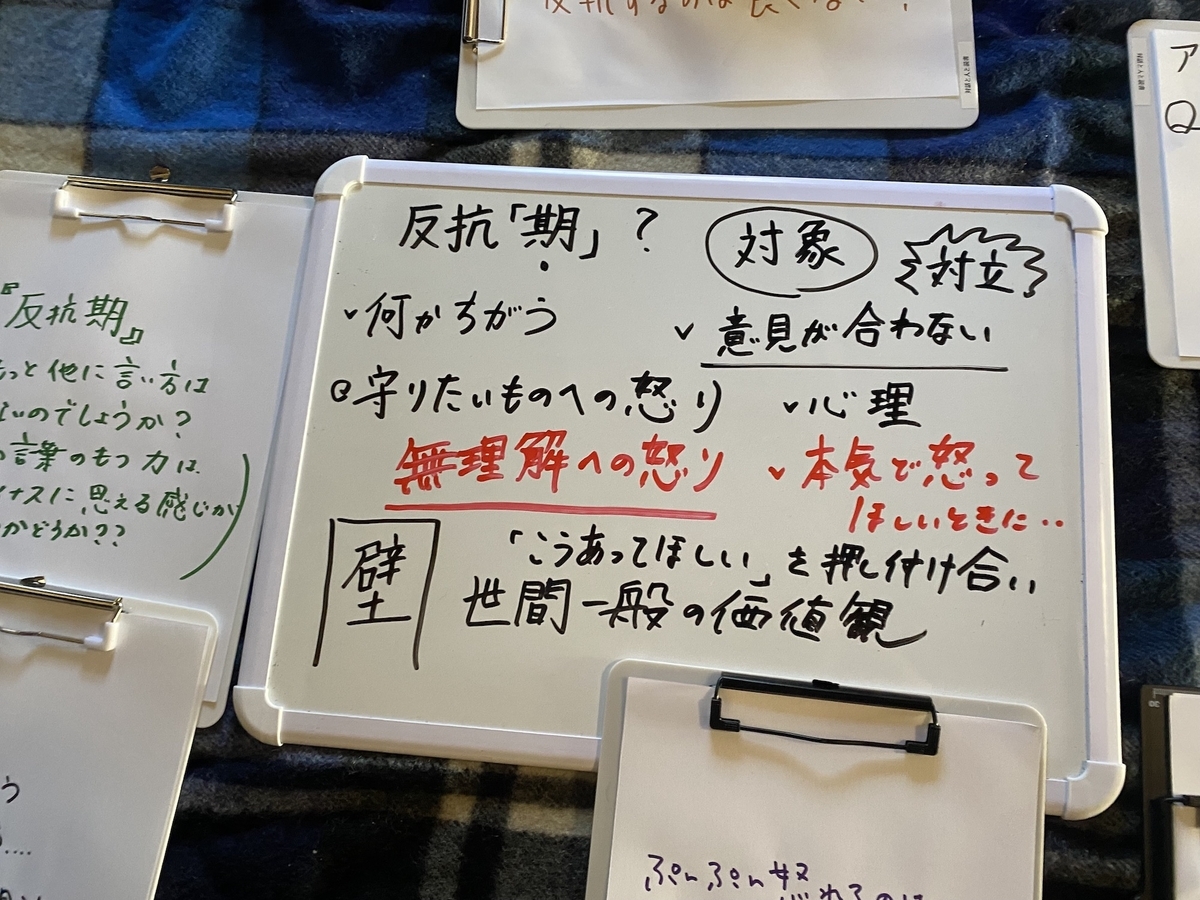 反抗「期」?
対象
対立
✓何かちがう
✓意見が合わない
守りたいものへの怒り
✓心理
無理解への怒り
✓本気で怒って
ほしいときに‥
壁
「こうあってほしい」を押し付け合い
世間一般の価値観
『反抗期』
っと他に言い方は
いのでしょうか?
言葉のもつ力は
ナスに思える感じが
かどうか??
ぷんぷん
ア
Q
う